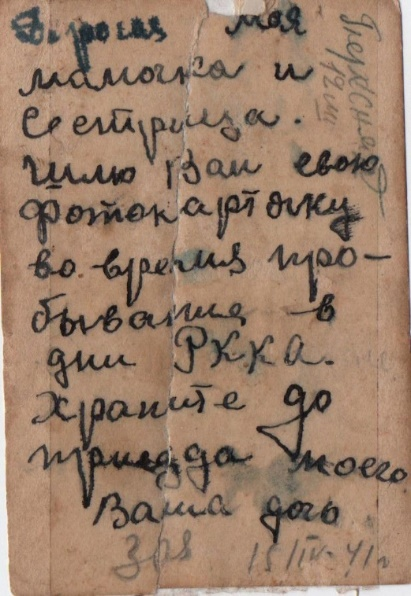 Дорогая моя
мамочка и
Сестрица.
Шлю Вам свою
Фотокарточку
во время про-
бывания в
дни РККА.
Храните до
приезда моего
Ваша дочь
Зоя 15/IV-41г